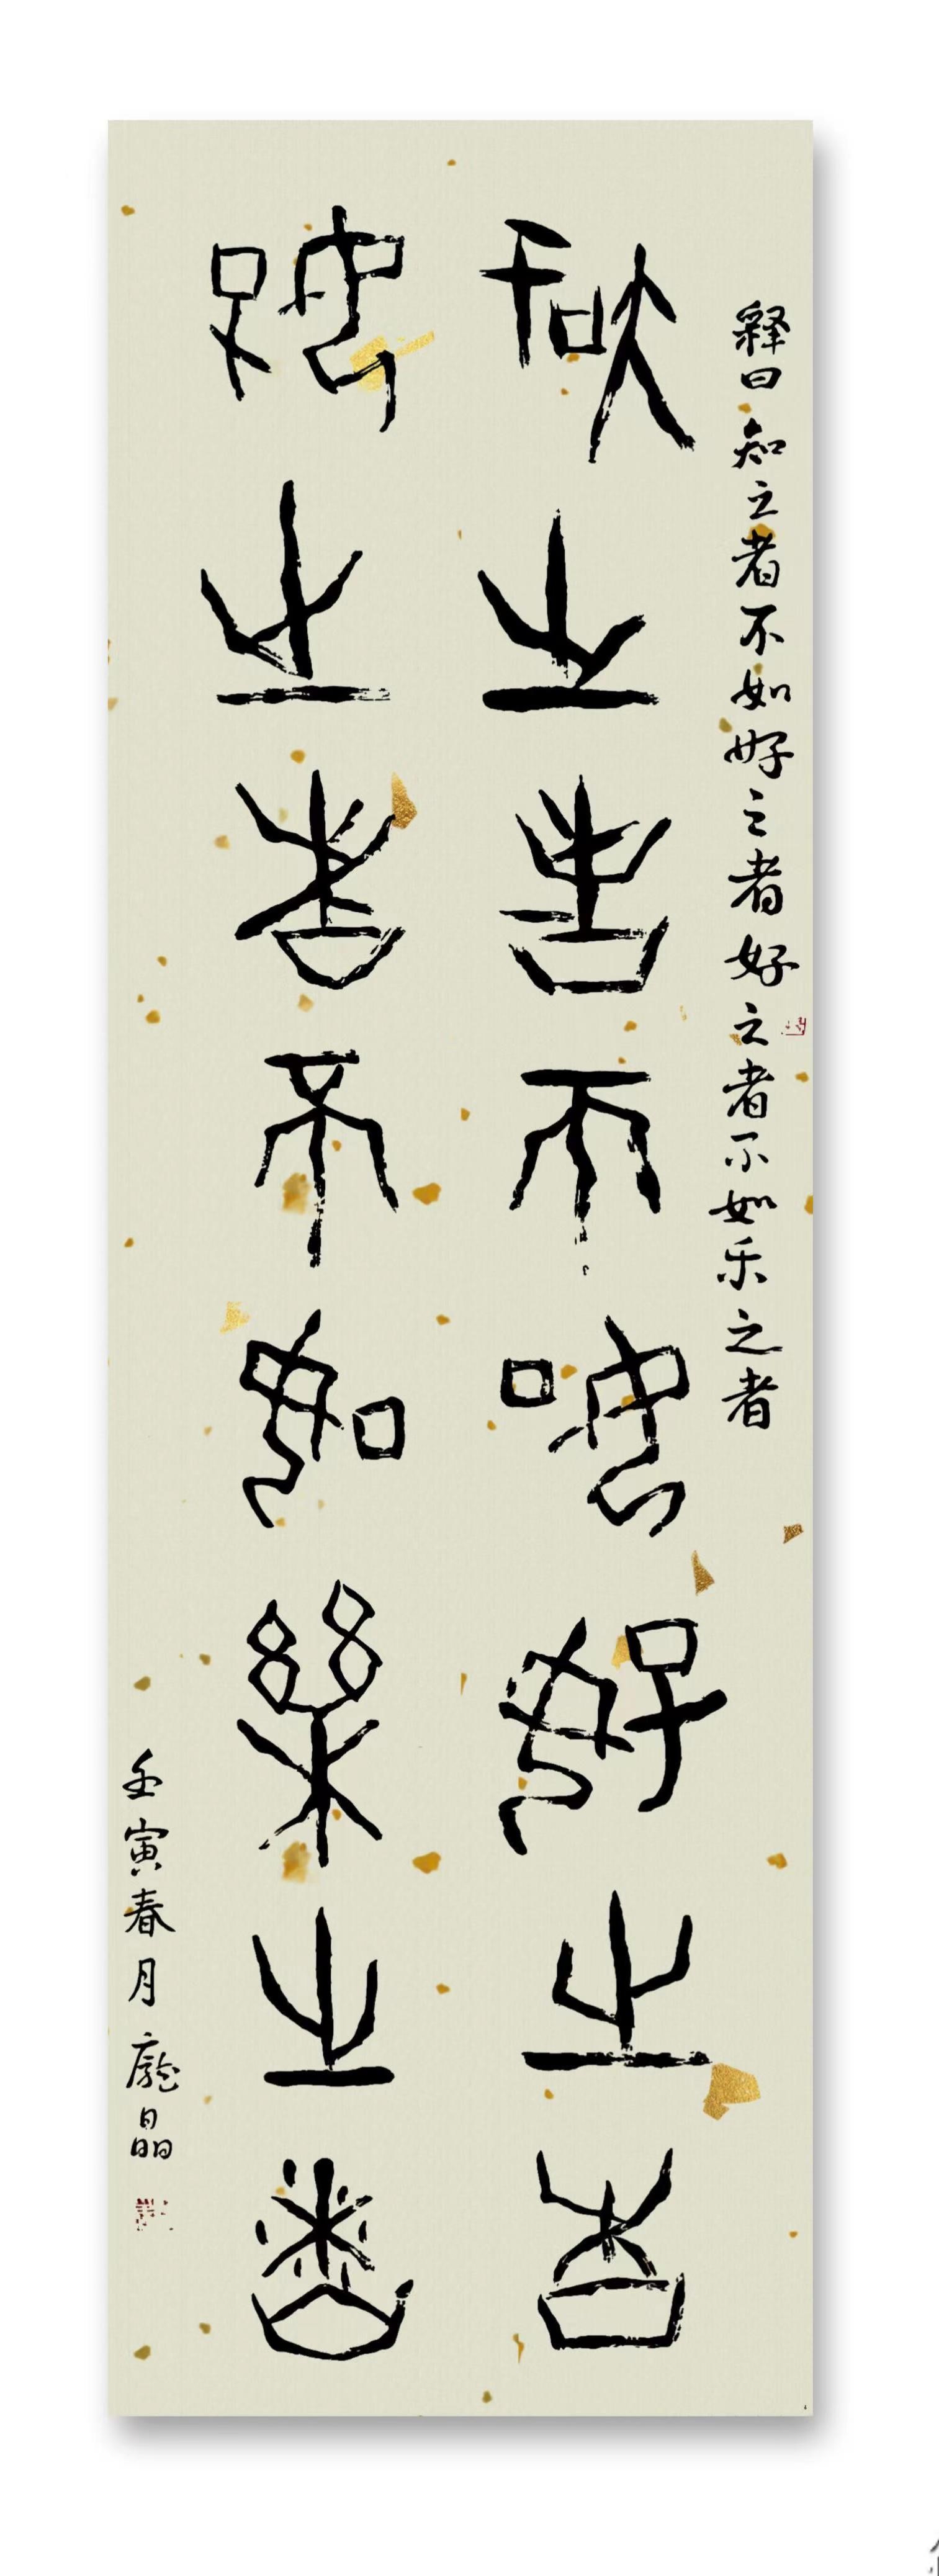 释曰知之者不如好之者好之者不如乐之者
知之者不如好之者
好之者不如樂之者
壬寅春月龐晶